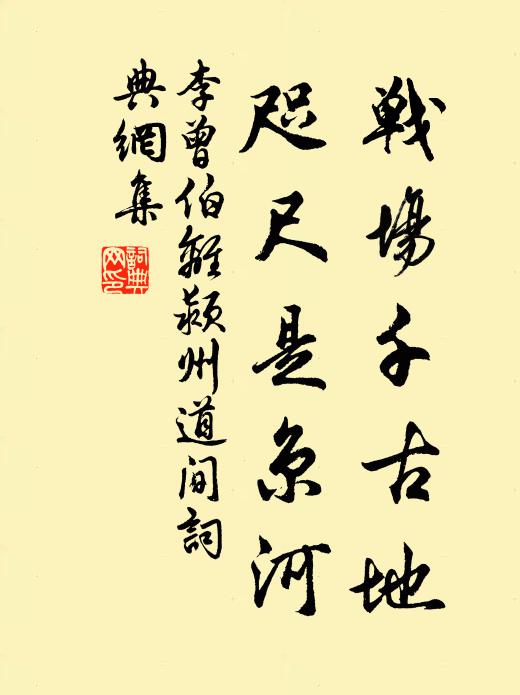 戰場千古地
咫尺是京河
李曾伯離潁州道間詞
典網集
詞典
網印